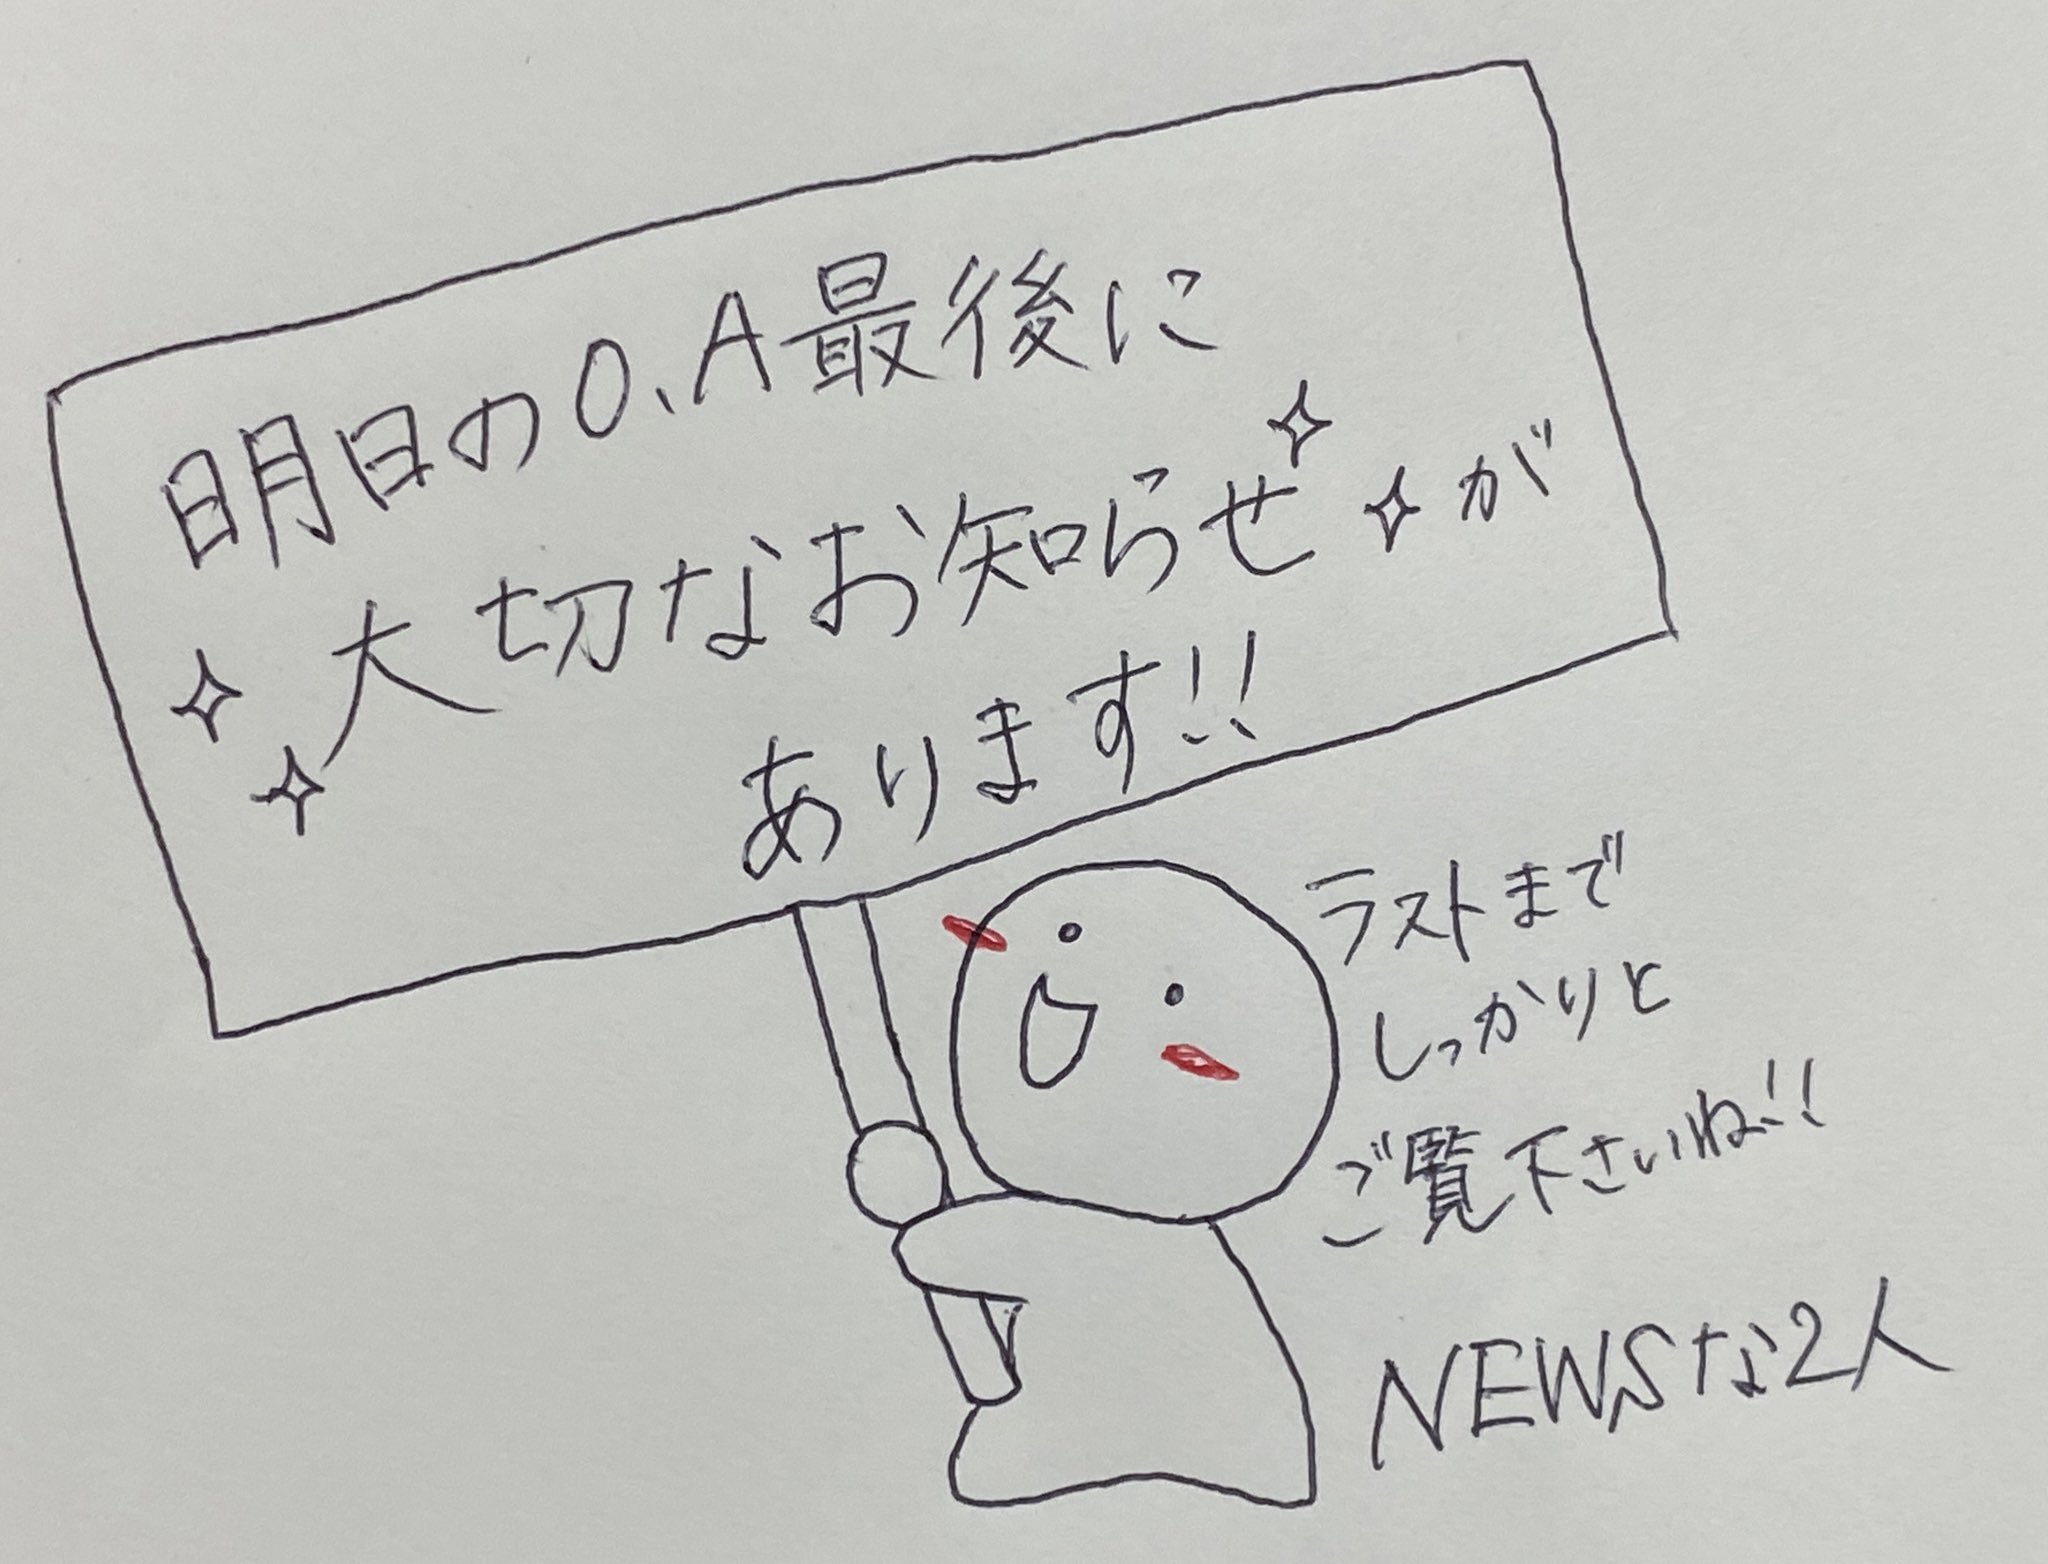 明日のO.A最後に
大切なお知らせが
あります!!
ラストまで
しっかりと
ご覧下さいね!!
NEWSな2人